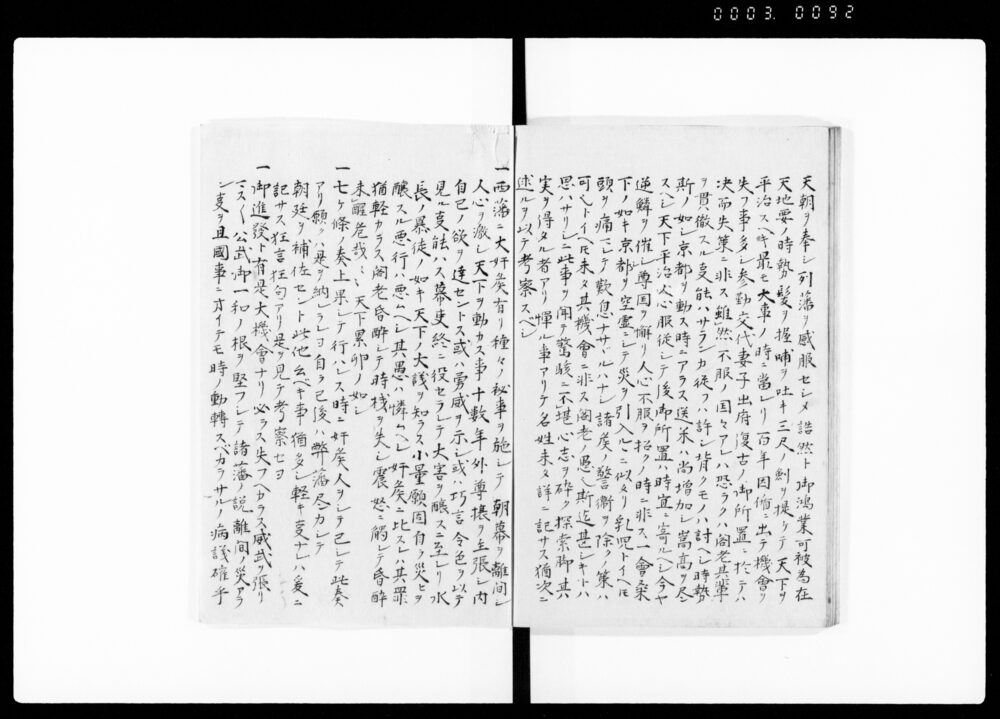 0003. 0092
天朝ヲ奉シ列藩ヲ感服セシメ誥然ト御鴻業可被為在
天地要ノ時勢髪ヲ握哺ヲ吐キ三尺ノ劍ヲ提ケテ天下ヲ
平治スヘキ最モ大事ノ時ニ當レリ百年因循ニ出テ機會ヲ
失フ事多シ参勤交代妻子出府復古ノ御所置ニ於テハ
決而失策ニ非ス雖然不服ノ国々アレハ恐ラクハ閣老其輩
ヲ貫徹スル叓能ハサランカ従フハ許シ背クモノハ討ヘシ時勢
斯ノ如シ京都ヲ動ス時ニアラス送米ハ尚増加シ嵩高ヲ尽
スヘシ天下平治人心服従シテ後御所置ハ時宜ニ寄ルヘシ今ヤ
逆鱗ヲ催シ尊国ヲ懈リ人心不服ヲ招クノ時ニ非ス一會桑
下ノ如キ京都ヲ空虚ニシテ災ヲ引入ルヽニ似タリ乳児トイヘトモ
頭ヲ痛マシテ歎息ナサヽルハナシ諸矦ノ警衛ヲ除クノ策ハ
可シトイヘトモ未タ其機會ニ非ス閣老ノ愚シ斯迄甚シキトハ
思ハサリシニ此事ヲ聞ヲ驚駭ニ不堪心志ヲ砕ク探索脚其ハ
実ヲ得タル者アリ憚ル事アリテ名姓未タ詳ニ記サス猶次ニ
述ルヲ以テ考察スヘシ
一西藩ニ大奸矦有リ種々ノ秘事ヲ施シテ朝幕ヲ離間シ
人心ヲ激シ天下ヲ動カス事十数年外尊攘ヲ主張シ内
自己ノ欲ヲ達セントス或ハ雰威ヲ示シ或ハ巧言令色ヲ以テ
見ル叓能ハス幕吏終ニ役セラレテ大害ヲ醸スニ至レリ水
長ノ暴徒ノ如キ天下ノ大議ヲ知ラス小量願固自ラ災ヒヲ
醸スル悪行ハ悪ムヘシ其愚ハ憐ムヘシ奸矦ニ比スレハ其罪
猶軽カラス閣老昏酔シテ時機ヲ失シ震怒ニ觸レテ昏酔
未醒危哉ミミ天下累卵ノ如シ
一七ヶ條ノ奏上果シテ行ハレス時ニ奸矦人ヲシテ已レテ此奏
アリ願クハ是ヲ納ラレヨ自ラ已後ハ弊藩尽力シテ
朝廷ヲ補佐セント此他云ベキ事猶多シ軽キ叓ナレハ爰ニ
記サス狂言狂句アリ是ヲ見テ考察セヨ
一御進發ト有是大機會ナリ必ラス失フヘカラス威武ヲ張リ
ミスシ公武御一和ノ根ヲ堅フシテ諸藩ノ説離間ノ災アラ
ン叓ヲ且國事ニオイテモ時ノ動轉スベカラサルノ病議確乎